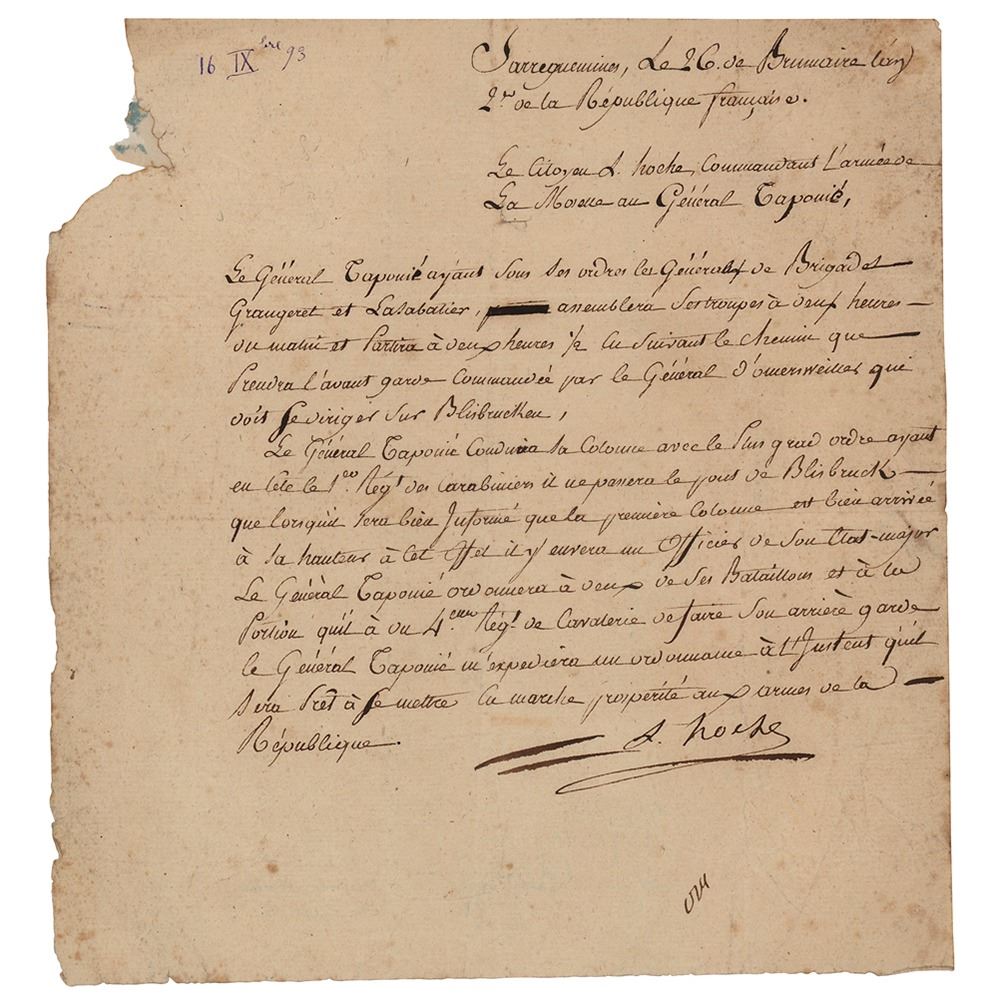 16 IXbre 93
Sarreguemines, Le 26. de Brumaire l'an
2.me de la République française.
Le Citoyen L. hoche, Commandant L'armée de
La Moselle au Général Taponié,
Le Général Taponié ayant sous ses ordres les Généraux de Brigade
Grangeret et Lasabatier, assemblera ses troupes à deux heures
du matin et Partira à deux heures 1/2 en suivant le chemin que
Prendra l'avant garde commandée par le Général d'omersweiller qui
doit se diriger sur Blisbrucken,
Le Général Taponié Conduira sa Colonne avec le Plus grad ordre ayant
en tete le 1.er Régt des carabiniers il ne passera le pont de Blisbruck
que lorsquil sera bien Informé que la première Colonne est bien arrivée
à sa hauteur à Cet Effet il y envera un Officier de son Etat-major
Le Général Taponié ordonnera à deux de ses Bataillons et à la
Portion quil à du 4.eme Régt de Cavalerie de faire son arrière garde
le Général Taponié m'expediera un ordonnance à l'Instent quil
sera Prêt à se mettre en marche prosperité aux armes de la
République.
L. hoche